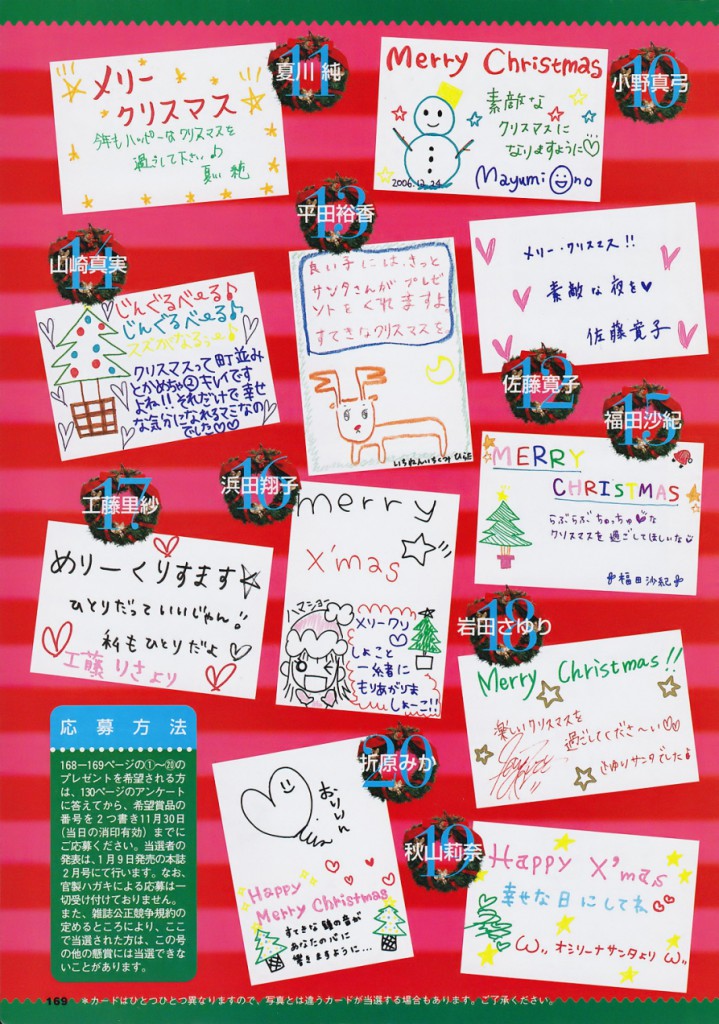 11
夏川 純
メリー
クリスマス
今年もハッピーなクリスマスを
過ごして下さい♪
夏川 純
10
小野真弓
Merry Christmas
素敵な
クリスマスに
なりますように♡
2006.12.24
Mayumi Ono
13
平田裕香
良い子には、きっと
サンタさんがプレゼ
ントをくれますよ。
すてきなクリスマスを
いちねんいちくみ ひらた
メリー・クリスマス!!
素敵な夜を♥
佐藤寛子
12
佐藤寛子
14
山崎真実
じんぐるべ〜る♪
じんぐるべ〜る♪
スズがなるぅ〜♪
クリスマスって町並み
とかめちゃ②キレイです
よね!!それだけで幸せ
な気分になれるマミなの
でした♡♡
15
福田沙紀
MERRY
CHRISTMAS
らぶらぶちゅっちゅ♥な
クリスマスを過ごしてほしいな
福田沙紀
17
工藤里紗
めりーくりすます☆
ひとりだっていいじゃん!!
私もひとりだよ
工藤りさより
16
浜田翔子
merry
X'mas
ハマショー
メリークリ
しょこと
一緒に
もりあがりま
しょーこ!!
18
岩田さゆり
Merry Christmas!!
楽しいクリスマスを
過ごしてくださ〜い♡♡
さゆりサンタでした♪
20
折原みか
おりりん
Happy
Merry Christmas
すてきな鐘の音が
あなたの心に
響きますように…
19
秋山莉奈
Happy X'mas
幸せな日にしてネ
オシリーナサンタより
応募方法
168—169ページの①〜⑳の
プレゼントを希望される方
は、130ページのアンケート
に答えてから、希望賞品の
番号を2つ書き11月30日
(当日の消印有効)までに
ご応募ください。当選者の
発表は、1月9日発売の本誌
2月号にて行います。なお、
官製ハガキによる応募は一
切受け付けておりません。
また、雑誌公正競争規約の
定めるところにより、ここ
で当選された方は、この号
の他の懸賞には当選できな
いことがあります。
169
＊カードはひとつひとつ異なりますので、写真とは違うカードが当選する場合もあります。ご了承ください。